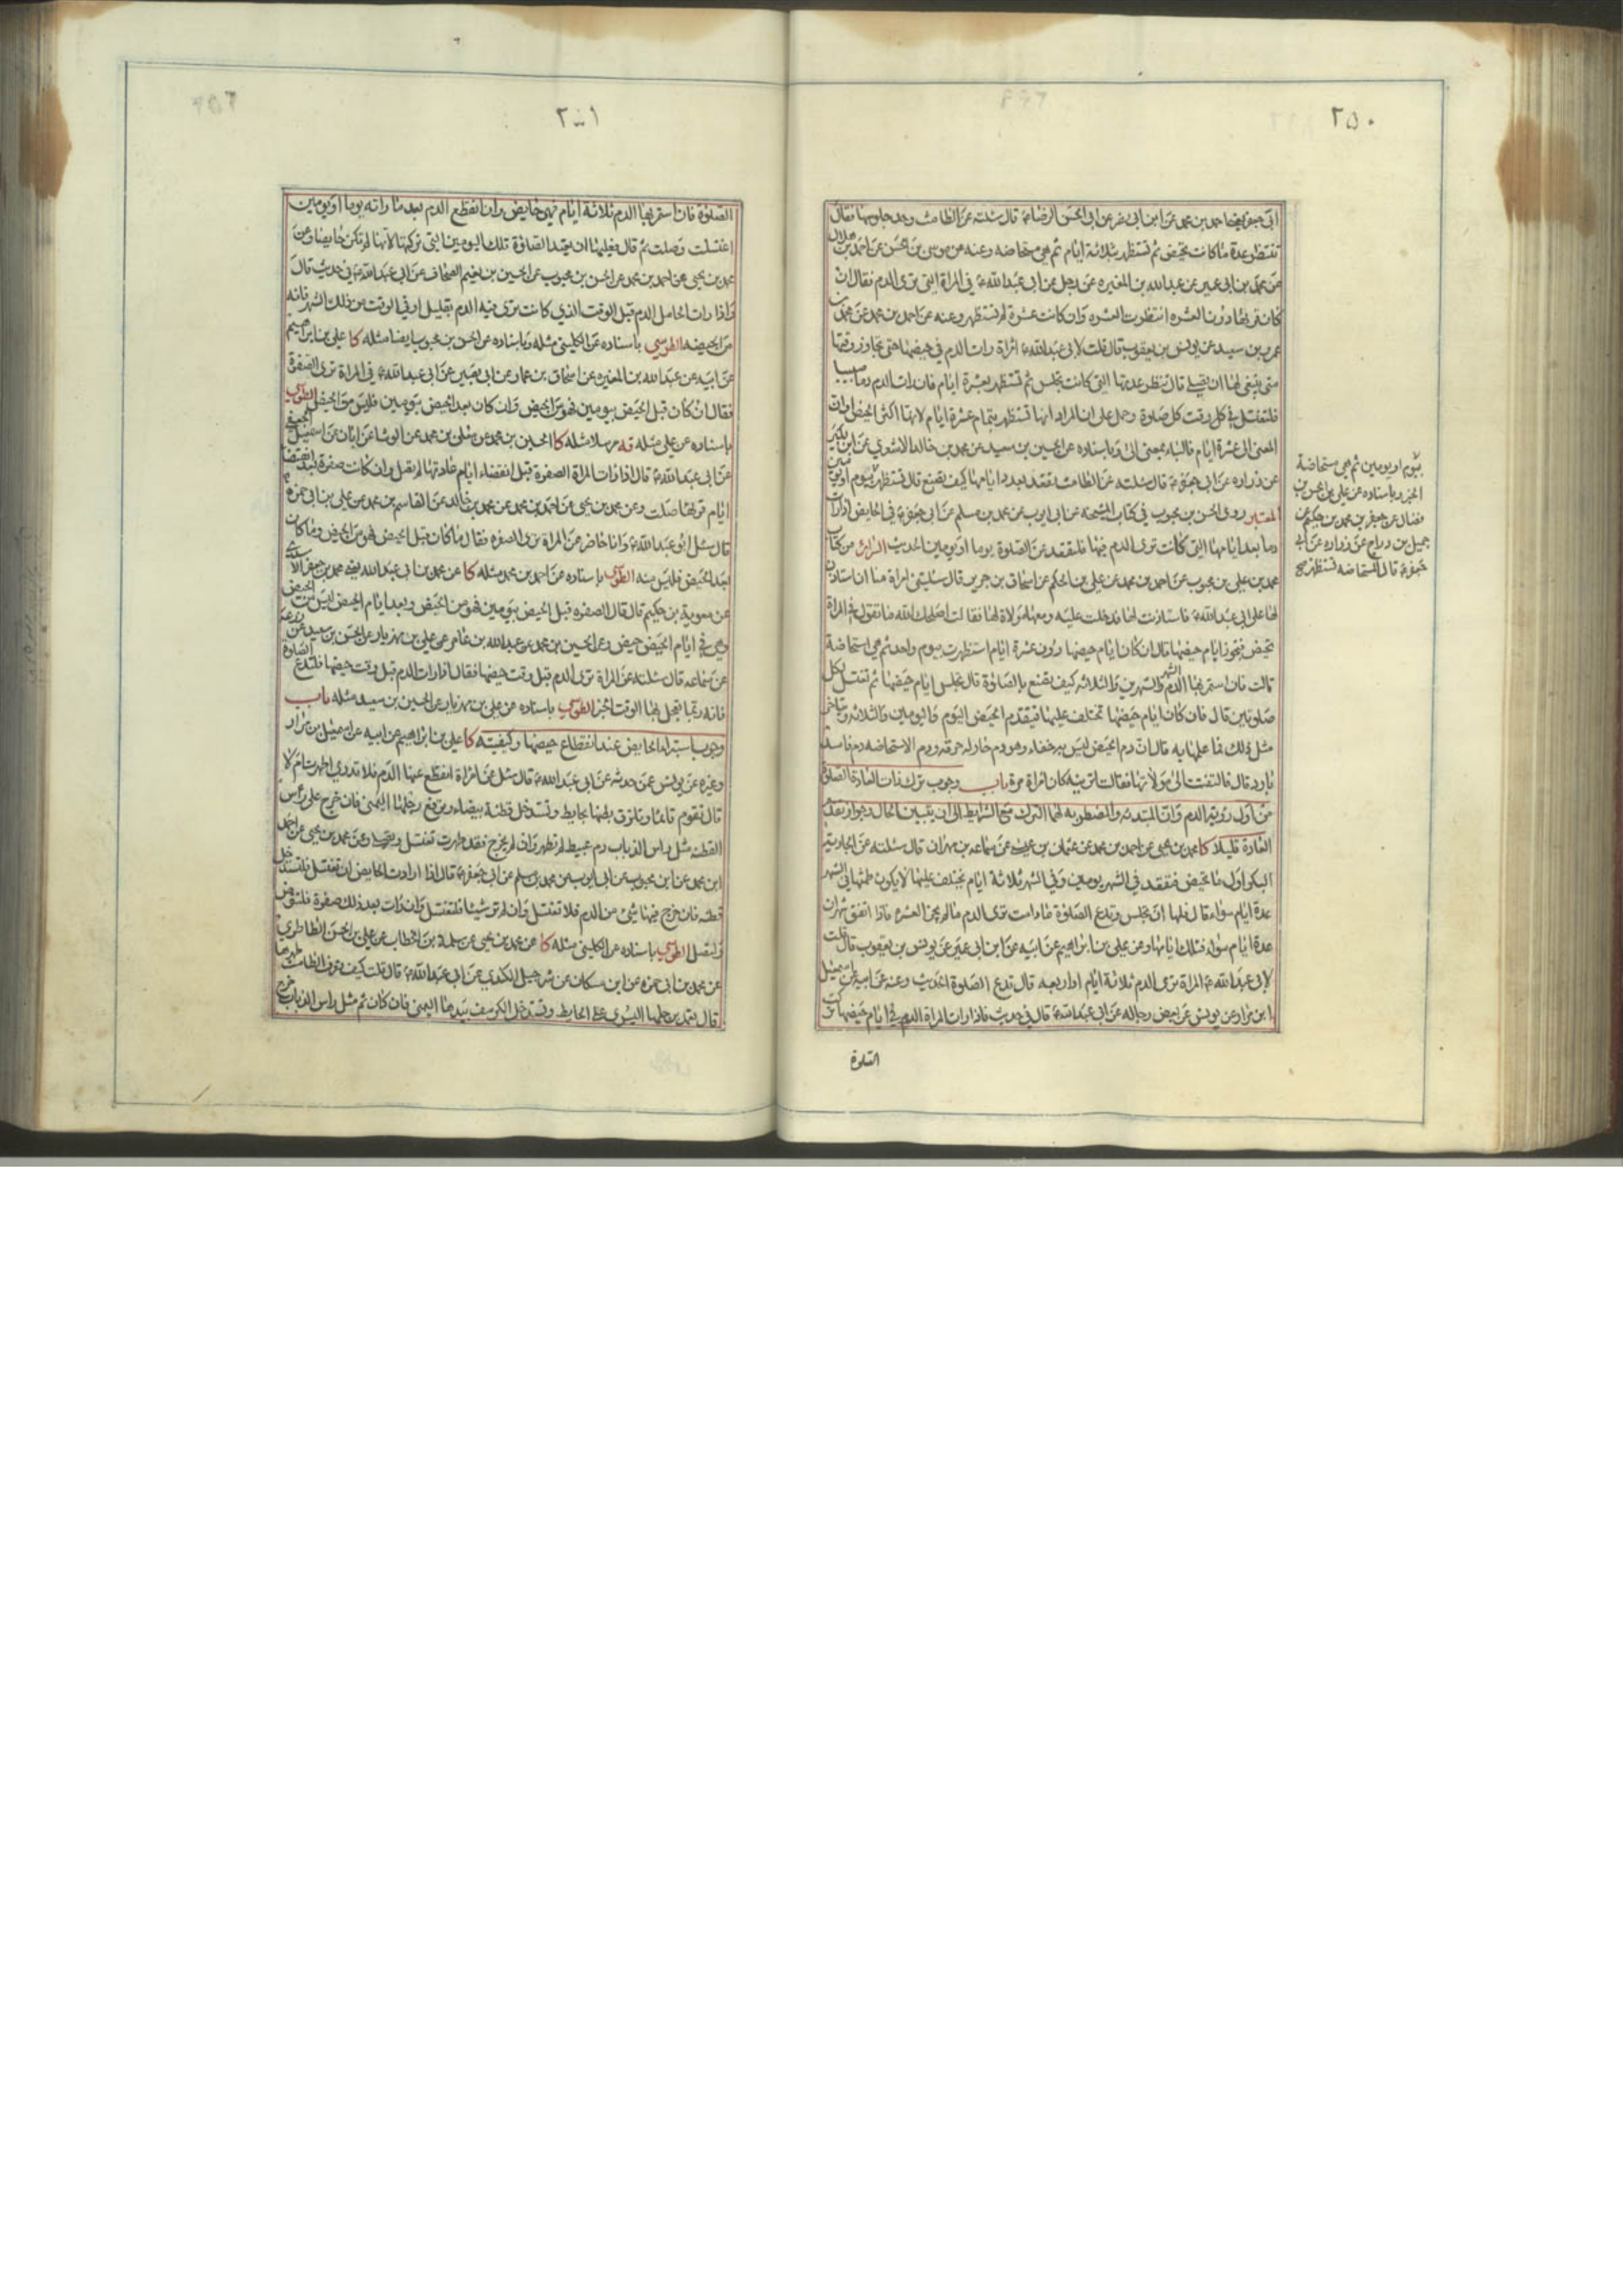 ٢٥٠
ابى جعفر يعنى احمد بن محمد عن ابن ابى نصر عن ابى الحسن الرضا ع قال سئلته عن الطامث وحد جلوسها فقال
تنتظر عدة ما كانت تحيض ثم تستظهر بثلاثة ايام ثم هى مستحاضه وعنه عن موسى بن الحسن عن احمد بن هلال
عن محمد بن ابى عمير عن عبدالله بن المغيره عن رجل عن ابى عبدالله ع فى المراة التى ترى الدم فقال ان
كان قرؤها دون العشره انتظرت العشره وان كانت عشرة لم تستظهر وعنه عن احمد بن محمد عن محمد بن
عمرو بن سعيد عن يونس بن يعقوب قال قلت لابى عبدالله ع امراة رات الدم فى حيضها حتى تجاوز وقتها
متى ينبغى لها ان تصلى قال تنظر عدتها التى كانت تجلس ثم تستظهر بعشرة ايام فان رات الدم دما صبيبا
فلتغتسل فى كل وقت كل صلوة وحمل على ان المراد انها تستظهر بتمام عشرة ايام لانها اكثر الحيض او ان
المعنى الى عشرة ايام فالباء بمعنى الى وباسناده عن الحسين بن سعيد عن محمد بن خالد الاشعرى عن ابن بكير
عن زراره عن ابى جعفر ع قال سئلته عن الطامث تقعد بعدد ايامها كيف تصنع قال تستظهر بيوم او يومين
المعتبر روى الحسن بن محبوب فى كتاب المشيخه عن ابى ايوب عن محمد بن مسلم عن ابى جعفر ع فى الحايض اذا رات
دما بعد ايامها التى كانت ترى الدم فيها فلتقعد عن الصلوة يوما او يومين الحديث السرائر من كتاب
محمد بن على بن محبوب عن احمد بن محمد عن على بن الحكم عن اسحاق بن جرير قال سئلتنى امراة منا ان استاذن
لها على ابى عبدالله ع فاستاذنت لها فدخلت عليه ومعها مولاة لها فقالت اصلحك الله ما تقول فى المراة
تحيض فتجوز ايام حيضها قال ان كان ايام حيضها دون عشرة ايام استظهرت بيوم واحد ثم هى استحاضة
قالت فان استمر بها الدم الشهر والشهرين والثلاثه كيف تصنع بالصلوة قال تجلس ايام حيضها ثم تغتسل لكل
صلوتين قال فان كان ايام حيضها تختلف عليها فيتقدم الحيض اليوم واليومين والثلاثه ويتاخر
مثل ذلك فما علمها به قال ان دم الحيض ليس به خفاء وهو دم حار له حرقه ودم الاستحاضه دم فاسد
بارد قال فالتفتت الى مولاتها فقالت اترينه كان امراة مرة باب وجوب ترك ذات العادة الصلوة
من اول رؤية الدم وان المبتدئه والمضطربه لهما الترك مع الشرايط الى ان يتبين الحال وجواز تقدم
العادة قليلا كا محمد بن يحيى عن احمد بن محمد عن عثمان بن عيسى عن سماعه بن مهران قال سئلته عن الجارية
البكر اول ما تحيض فتقعد فى الشهر يومين وفى الشهر ثلاثة ايام يختلف عليها لا يكون طمثها فى الشهر
عدة ايام سواء قال فلها ان تجلس وتدع الصلوة ما دامت ترى الدم ما لم يجز العشره فاذا اتفق شهران
عدة ايام سواء فتلك ايامها وعن على بن ابراهيم عن ابيه عن ابن ابى عمير عن يونس بن يعقوب قال قلت
لابى عبدالله ع المراة ترى الدم ثلاثة ايام او اربعه قال تدع الصلوة الحديث وعنه عن ابيه عن اسمعيل
ابن مرار عن يونس عن بعض رجاله عن ابى عبدالله ع قال فى حديث فاذا رات المراة الدم فى ايام حيضها تركت
الصلوة
بيوم او يومين ثم هى مستحاضة
الخبر وباسناده عن على بن الحسن بن
فضال عن جعفر بن محمد بن حكيم عن
جميل بن دراج عن زراره عن ابى
جعفر ع قال المستحاضه تستظهر صح
٢٥١
الصلوة فان استمر بها الدم ثلاثة ايام فهى حايض وان انقطع الدم بعد ما راته يوما او يومين
اغتسلت وصلت ثم قال فعليها ان تعيد الصلوة تلك اليومين التى تركتها لانها لم تكن حايضا وعن
محمد بن يحيى عن احمد بن محمد عن الحسن بن محبوب عن الحسين بن نعيم الصحاف عن ابى عبدالله ع فى حديث قال
واذا رات الحامل الدم قبل الوقت الذى كانت ترى فيه الدم بقليل او فى الوقت من ذلك الشهر فانه
من الحيضه الطوسى باسناده عن الكلينى مثله وباسناده عن الحسن بن محبوب ايضا مثله كا على بن ابراهيم
عن ابيه عن عبدالله بن المغيره عن اسحاق بن عمار عن ابى بصير عن ابى عبدالله ع فى المراة ترى الصفرة
فقال ان كان قبل الحيض بيومين فهو من الحيض وان كان بعد الحيض بيومين فليس من الحيض الطوسى
باسناده عن على مثله قه مرسلا مثله كا الحسين بن محمد عن معلى بن محمد عن الوشا عن ابان عن اسمعيل الجعفى
عن ابى عبدالله ع قال اذا رات المراة الصفرة قبل انقضاء ايام عادتها لم تصل وان كانت صفرة بعد انقضا
ايام قرئها صلت وعن محمد بن يحيى عن احمد بن محمد عن محمد بن خالد عن القاسم بن محمد عن على بن ابى حمزه
قال سئل ابو عبدالله ع وانا حاضر عن المراة ترى الصفره فقال ما كان قبل الحيض فهو من الحيض وما كان
بعد الحيض فليس منه الطوسى باسناده عن احمد بن محمد مثله كا عن محمد بن ابى عبدالله يعنى محمد بن جعفر الاسدى
عن معوية بن حكيم قال قال الصفره قبل الحيض بيومين فهو من الحيض وبعد ايام الحيض ليس من الحيض
وهى فى ايام الحيض حيض وعن الحسين بن محمد عن عبدالله بن عامر عن على بن مهزيار عن الحسن بن سعيد عن زرعة
عن سماعه قال سئلته عن المراة ترى الدم قبل وقت حيضها فقال اذا رات الدم قبل وقت حيضها فلتدع الصلوة
فانه ربما تعجل بها الوقت الخبر الطوسى باسناده عن على بن مهزيار عن الحسين بن سعيد مثله باب
وجوب استبراء الحايض عند انقطاع حيضها وكيفيته كا على بن ابراهيم عن ابيه عن اسمعيل بن مرار
وغيره عن يونس عن حدثه عن ابى عبدالله ع قال سئل عن امراة انقطع عنها الدم فلا تدرى اطهرت ام لا
قال تقوم قائما وتلزق بطنها بحايط وتستدخل قطنة بيضاء وترفع رجلها اليمنى فان خرج على راس
القطنه مثل راس الذباب دم عبيط لم تطهر وان لم يخرج فقد طهرت تغتسل وتصلى وعن محمد بن يحيى عن احمد
ابن محمد عن ابن محبوب عن ابى ايوب عن محمد بن مسلم عن ابى جعفر ع قال اذا ارادت الحايض ان تغتسل فلتستدخل
قطنه فان خرج فيها شئ من الدم فلا تغتسل وان لم تر شيئا فلتغتسل وان رات بعد ذلك صفرة فلتوض
ولتصل الطوسى باسناده عن الكلينى مثله كا عن محمد بن يحيى عن سلمة بن الخطاب عن على بن الحسن الطاطرى
عن محمد بن ابى حمزه عن ابن مسكان عن شرحبيل الكندى عن ابى عبدالله ع قال قلت كيف تعرف الطامث طهرها
قال تعمد برجلها اليسرى على الحايط وتستدخل الكرسف بيدها اليمنى فان كان ثم مثل راس الذباب خرج